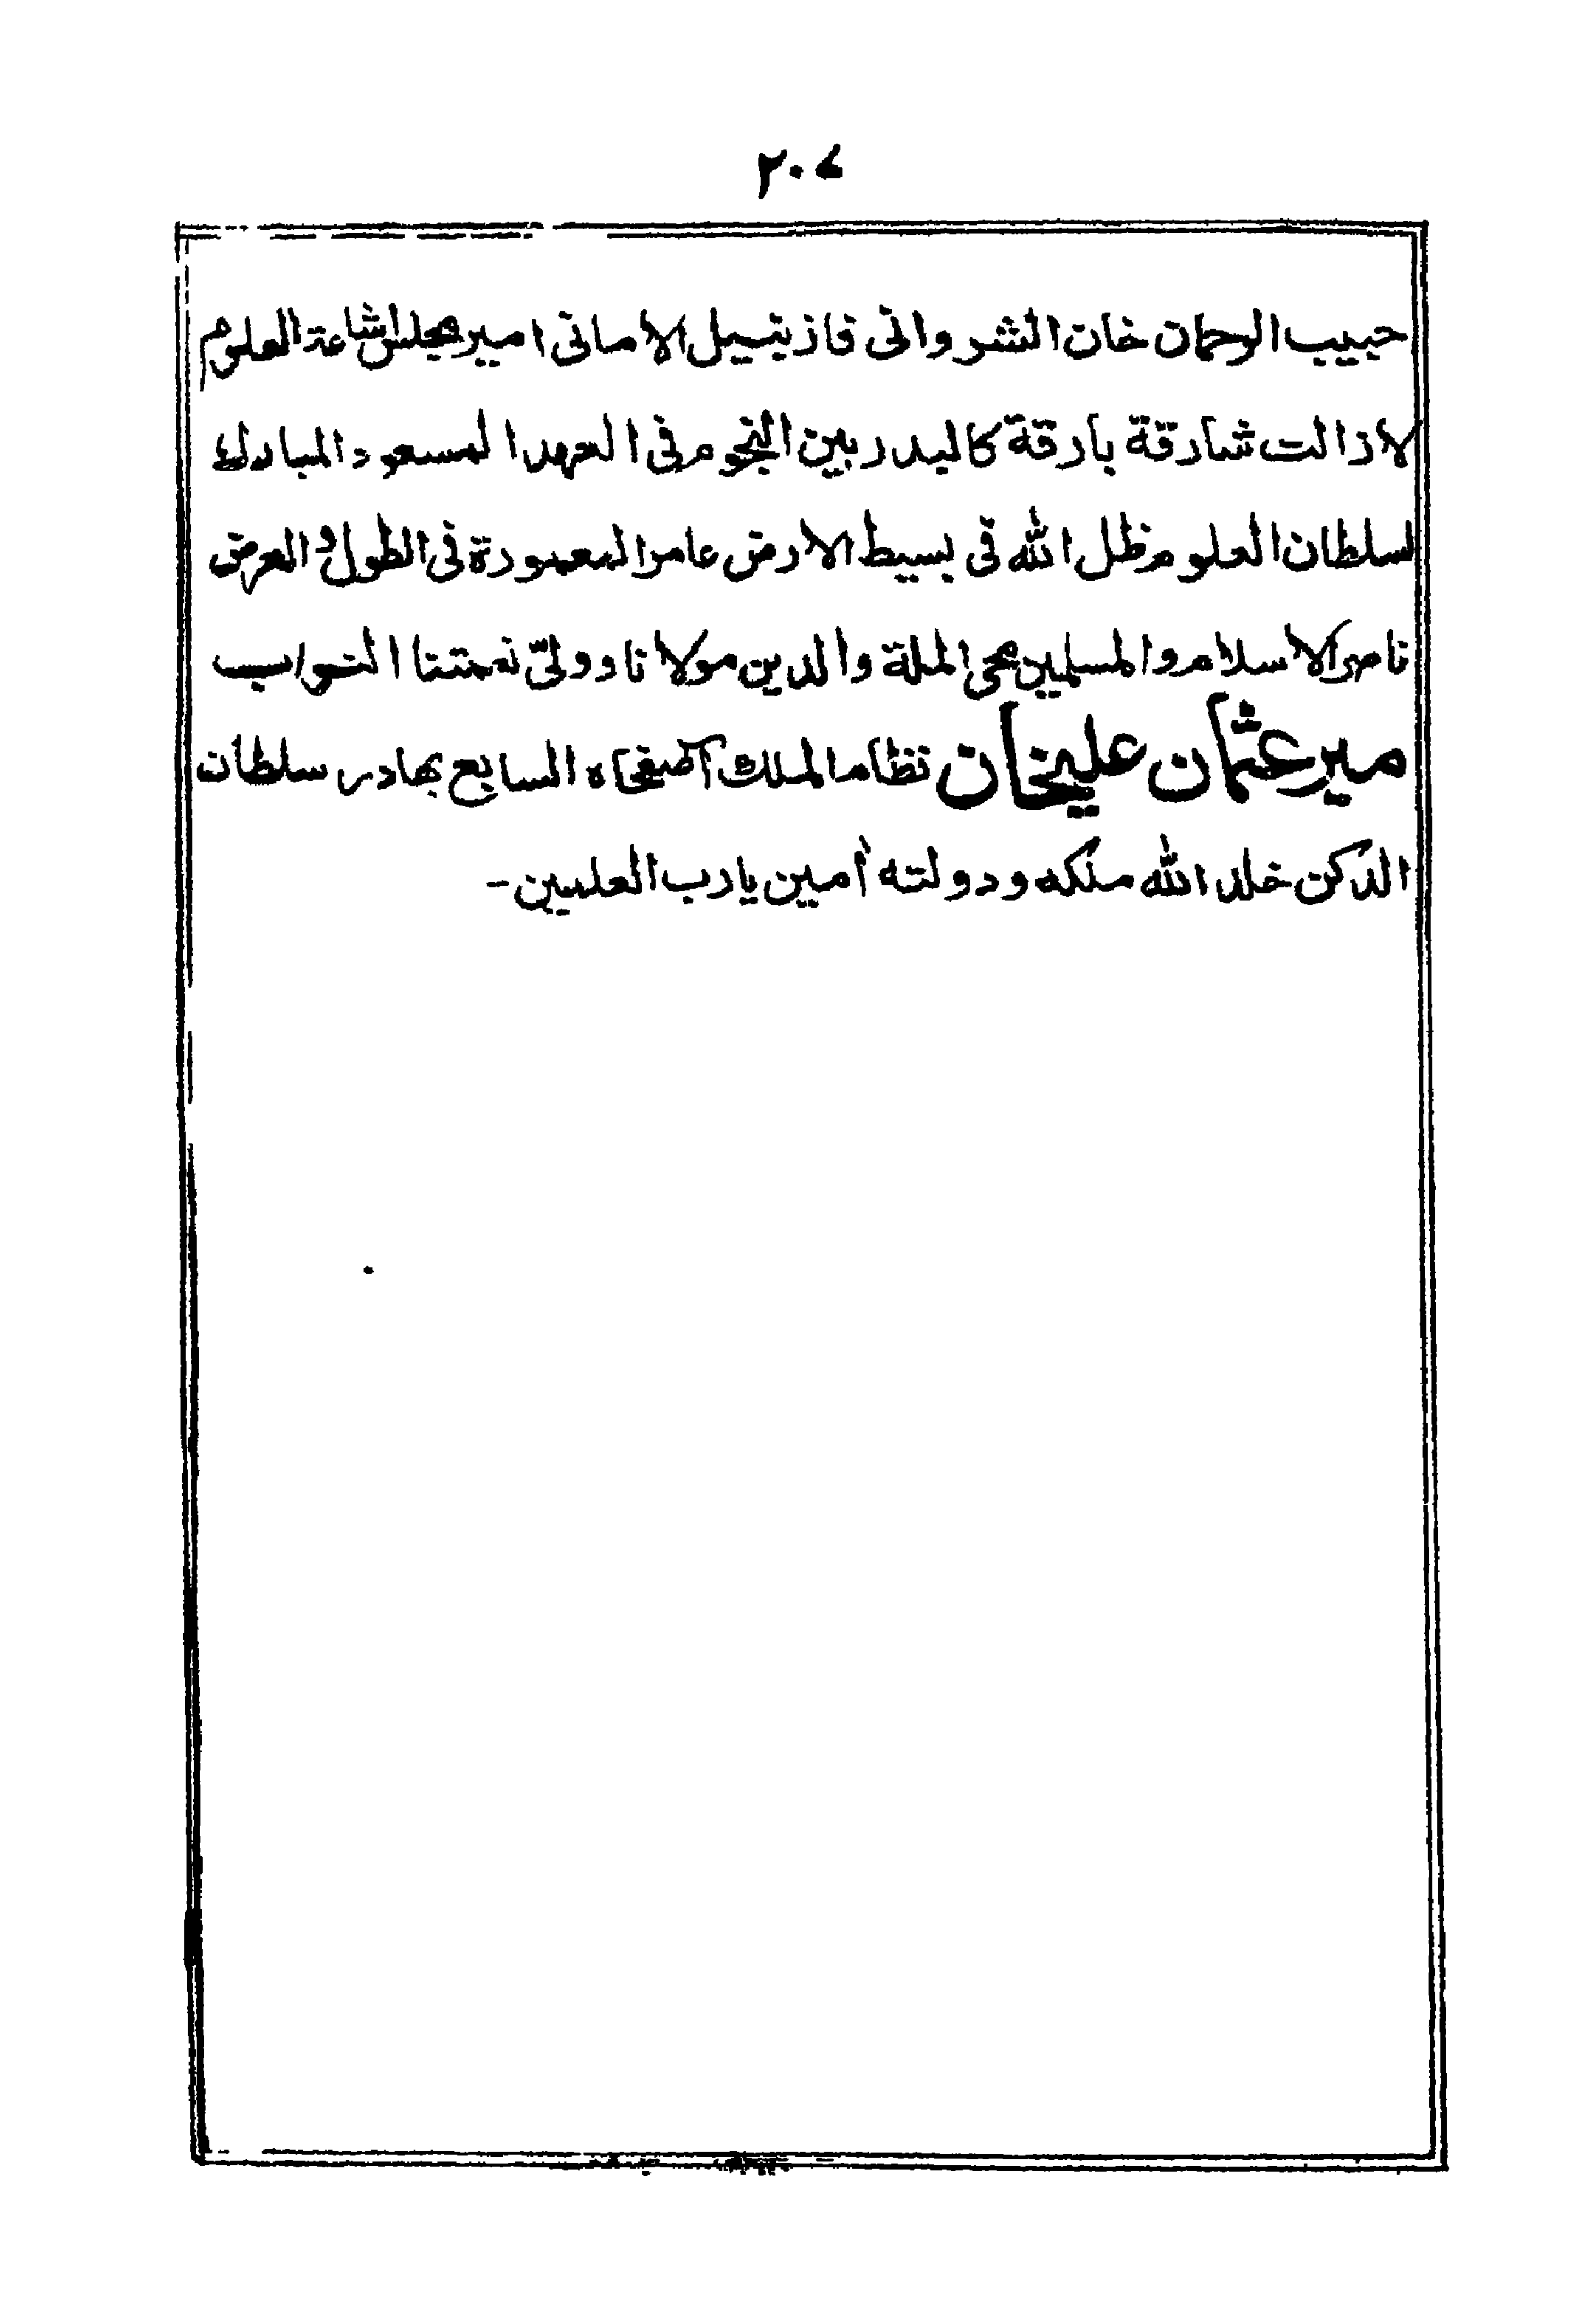 ۲۰۷
حبيب الرحمان خان الشروانى فاز بنيل الامانى امير مجلس اشاعة العلوم
لازالت شارقة بارقة كالبدر بين النجوم فى العهد المسعود المبارك
لسلطان العلوم ظل الله فى بسيط الارض عامر المعمورة فى الطول و العرض
ناصر الاسلام والمسلمين محى الملة والدين مولانا و ولىّ نعمتنا النواب
مير عثمان عليخان نظام الملك آصفجاه السابع بهادر سلطان
الدكن خلد الله ملكه ودولته أمين يارب العلمين-